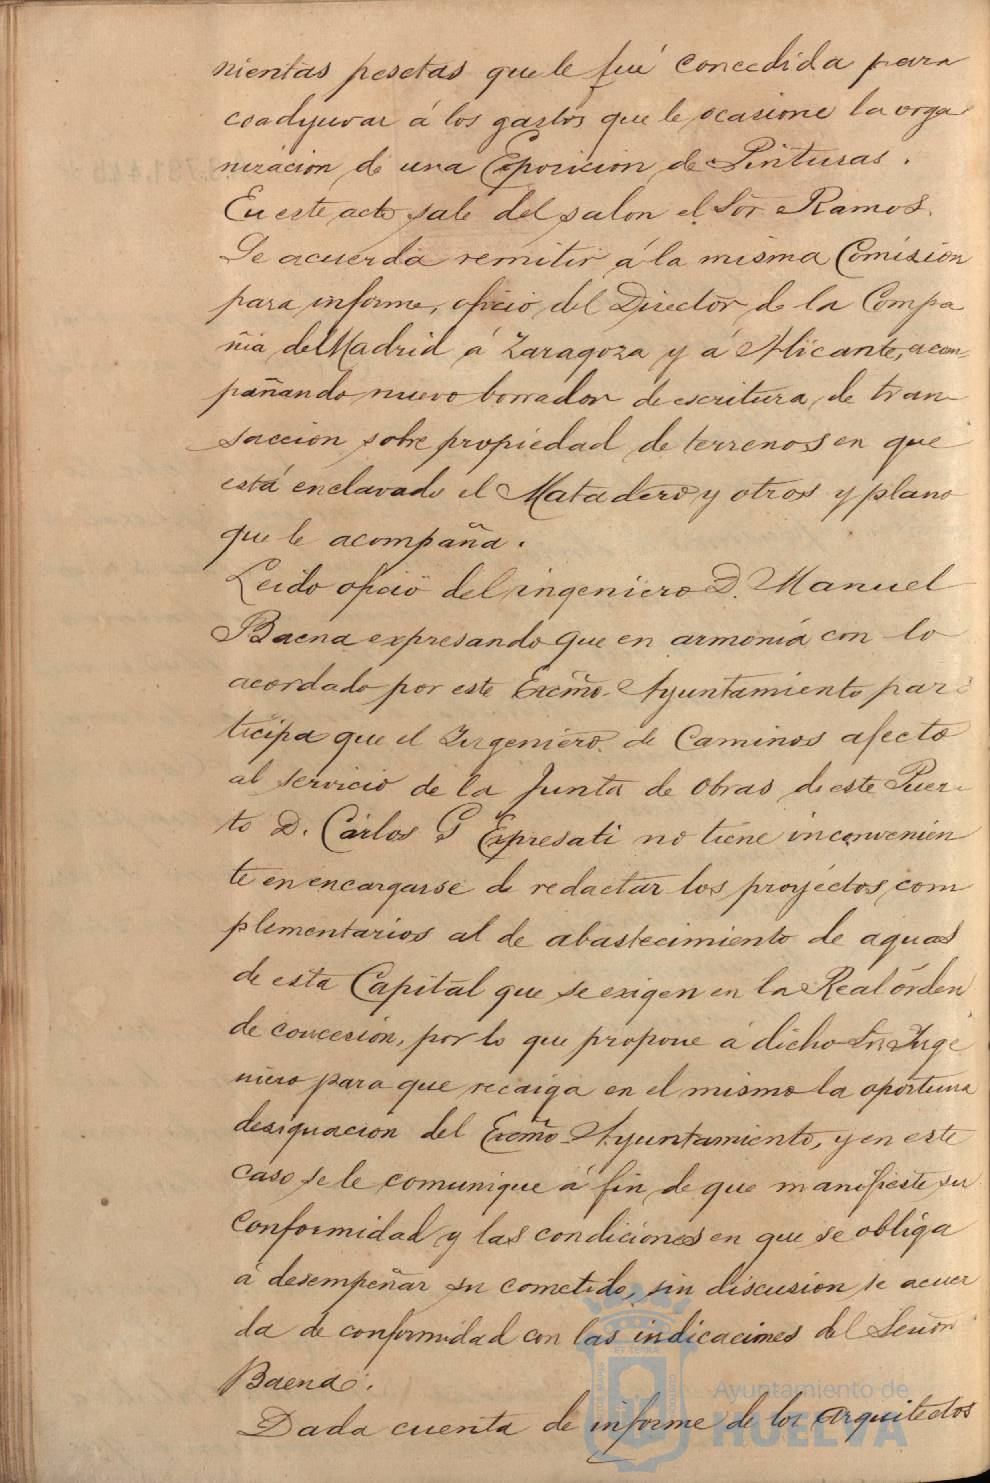 nientas pesetas que le fué concedida para
coadyuvar á los gastos que le ocasione la orga
nizacion de una Exposicion de Pinturas.
En este acto sale del salon el Sor. Ramos.
Se acuerda remitir á la misma Comision
para informe, oficio del Director de la Compa
ñia de Madrid á Zaragoza y á Alicante, acom-
pañando nuevo borrador de escritura de tran-
saccion sobre propiedad de terrenos en que
está enclavado el Matadero y otros y plano
que le acompaña.
Leido oficio del ingeniero D. Manuel
Baena expresando que en armonía con lo
acordado por este Excmo. Ayuntamiento par-
ticipa que el Ingeniero de Caminos afecto
al servicio de la Junta de Obras de este Puer-
to D. Cárlos G Expresati no tiene inconvenien
te en encargarse de redactar los proyéctos com
plementarios al de abastecimiento de aguas
de esta Capital que se exigen en la Real órden
de concesión, por lo que propone á dicho Sr. Inge
niero para que recaiga en el mismo la oportuna
designacion del Excmo. Ayuntamiento, y en este
caso se le comunique á fin de que manifieste su
conformidad y las condiciones en que se obliga
á desempeñar su cometido, sin discusion se acuer
da de conformidad con las indicaciones del Señor
Baena.
Dada cuenta de informe de los Arquitectos
Ayuntamiento de
HUELVA